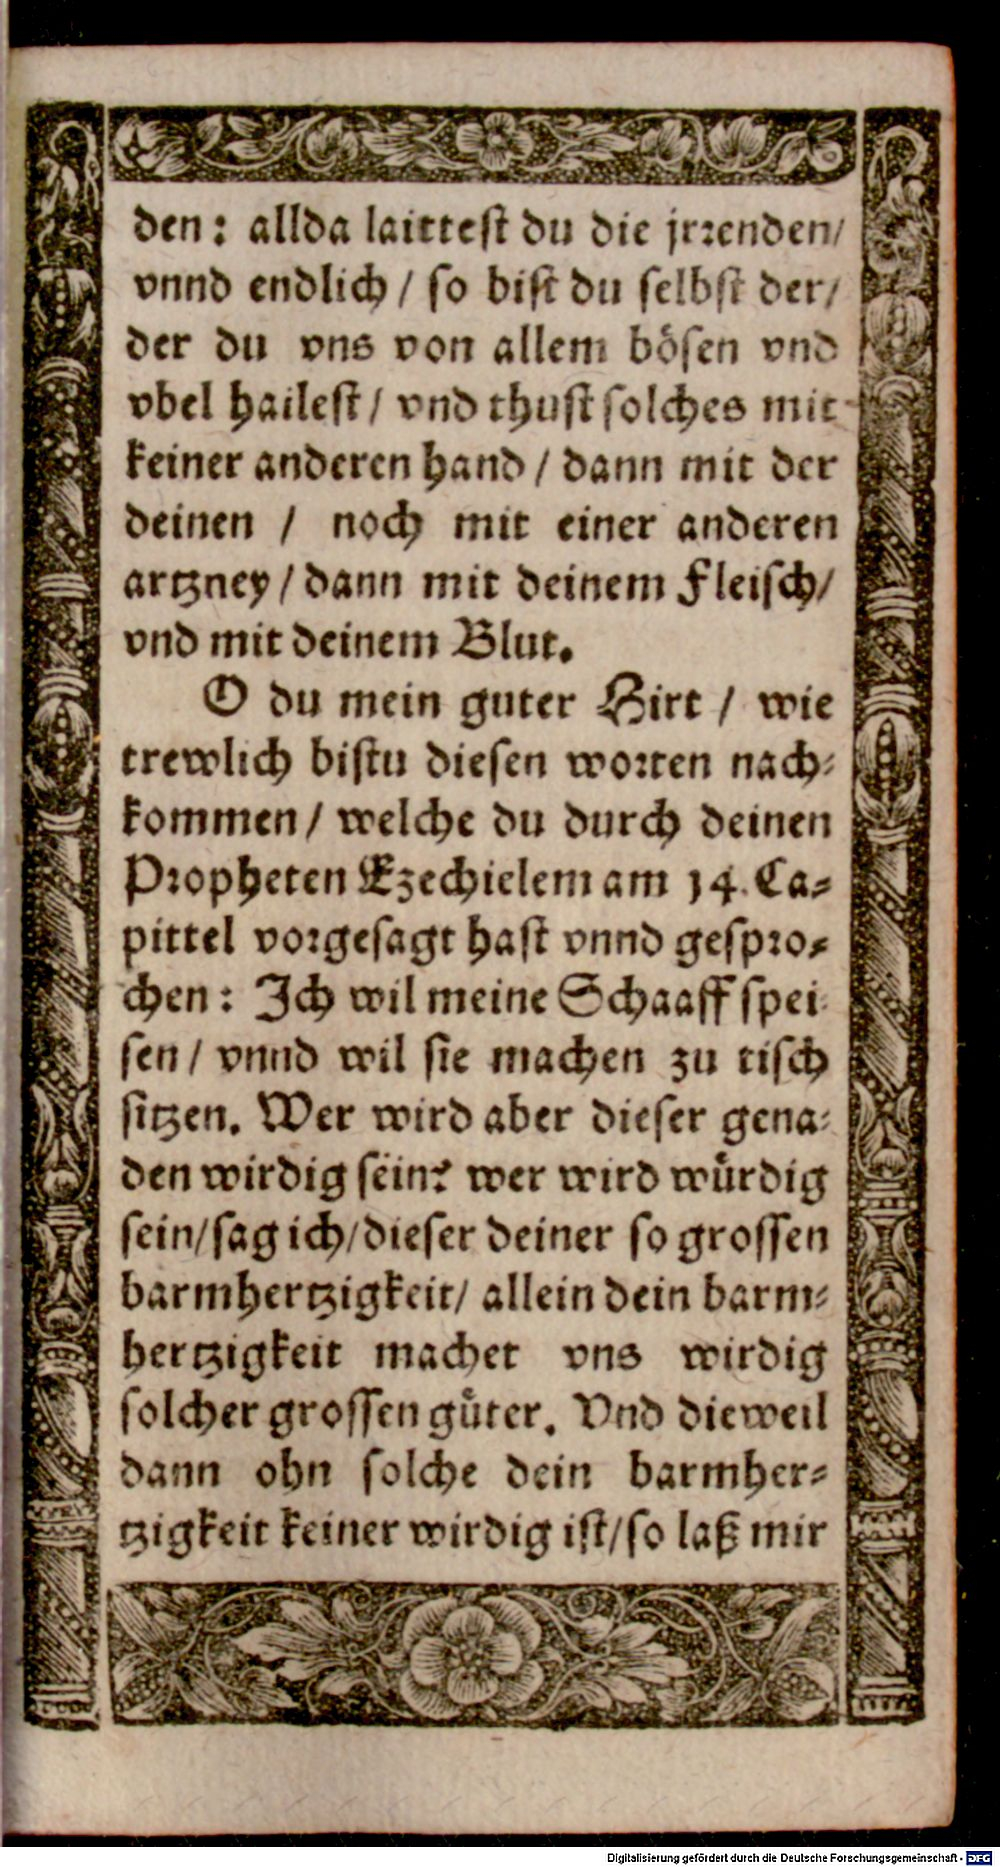 den: allda laittest du die jrrenden/
vnnd endlich / so bist du selbst der/
der du vns von allem bösen vnd
vbel hailest / vnd thust solches mit
keiner anderen hand / dann mit der
deinen / noch mit einer anderen
artzney / dann mit deinem Fleisch/
vnd mit deinem Blut.
O du mein guter Hirt / wie
trewlich bistu diesen worten nach-
kommen / welche du durch deinen
Propheten Ezechielem am 14. Ca-
pittel vorgesagt hast vnnd gespro-
chen: Ich wil meine Schaaff spei-
sen / vnnd wil sie machen zu tisch
sitzen. Wer wird aber dieser gena-
den wirdig sein? wer wird wůrdig
sein/sag ich/dieser deiner so grossen
barmhertzigkeit/ allein dein barm-
hertzigkeit machet vns wirdig
solcher grossen gůter. Vnd dieweil
dann ohn solche dein barmher-
tzigkeit keiner wirdig ist/so laß mir
Digitalisierung gefördert durch die Deutsche Forschungsgemeinschaft - DFG